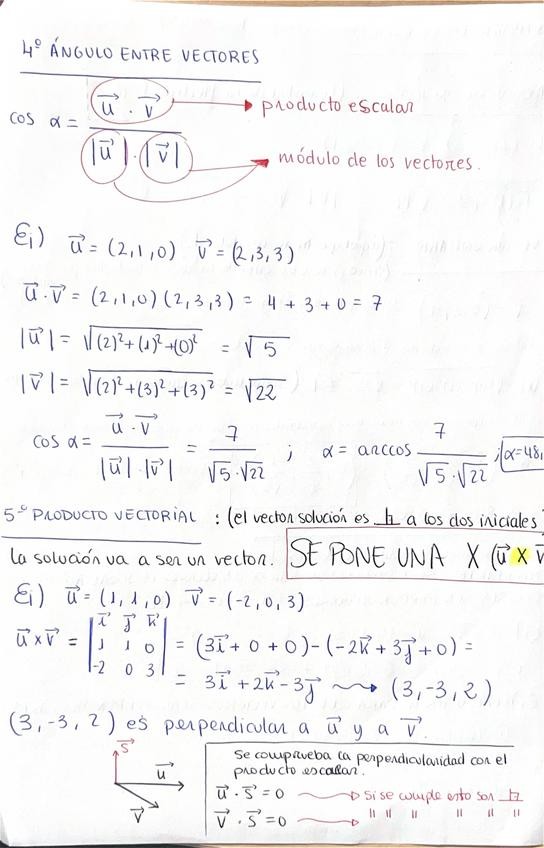 4º ÁNGULO ENTRE VECTORES
cos α = (u⃗ · v⃗) / (|u⃗| · |v⃗|)
→ producto escalar
→ módulo de los vectores.
Ej) u⃗ = (2,1,0) v⃗ = (2,3,3)
u⃗ · v⃗ = (2,1,0) (2,3,3) = 4 + 3 + 0 = 7
|u⃗| = √((2)² + (1)² + (0)²) = √5
|v⃗| = √((2)² + (3)² + (3)²) = √22
cos α = (u⃗ · v⃗) / (|u⃗| · |v⃗|) = 7 / (√5 · √22) ; α = arccos 7 / (√5 · √22) ; α = 48,
5º PRODUCTO VECTORIAL : (el vector solución es a los dos iniciales
la solución va a ser un vector. SE PONE UNA X (u⃗ X v⃗
Ej) u⃗ = (1, 1, 0) v⃗ = (-2, 0, 3)
i⃗ j⃗ k⃗
u⃗ x v⃗ = | 1 1 0 | = (3i⃗ + 0 + 0) - (-2k⃗ + 3j⃗ + 0) =
-2 0 3
= 3i⃗ + 2k⃗ - 3j⃗ → (3, -3, 2)
(3, -3, 2) es perpendicular a u⃗ y a v⃗.
s⃗
u⃗
v⃗
Se comprueba la perpendicularidad con el
producto escalar.
u⃗ · s⃗ = 0 → si se cumple esto son
v⃗ · s⃗ = 0 → " " " " " "